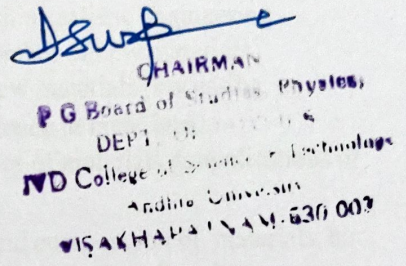 CHAIRMAN
P G Board of Studies Physics,
DEPT. OF
College of Science Technology
Andhra University
VISAKHAPATNAM-530 003